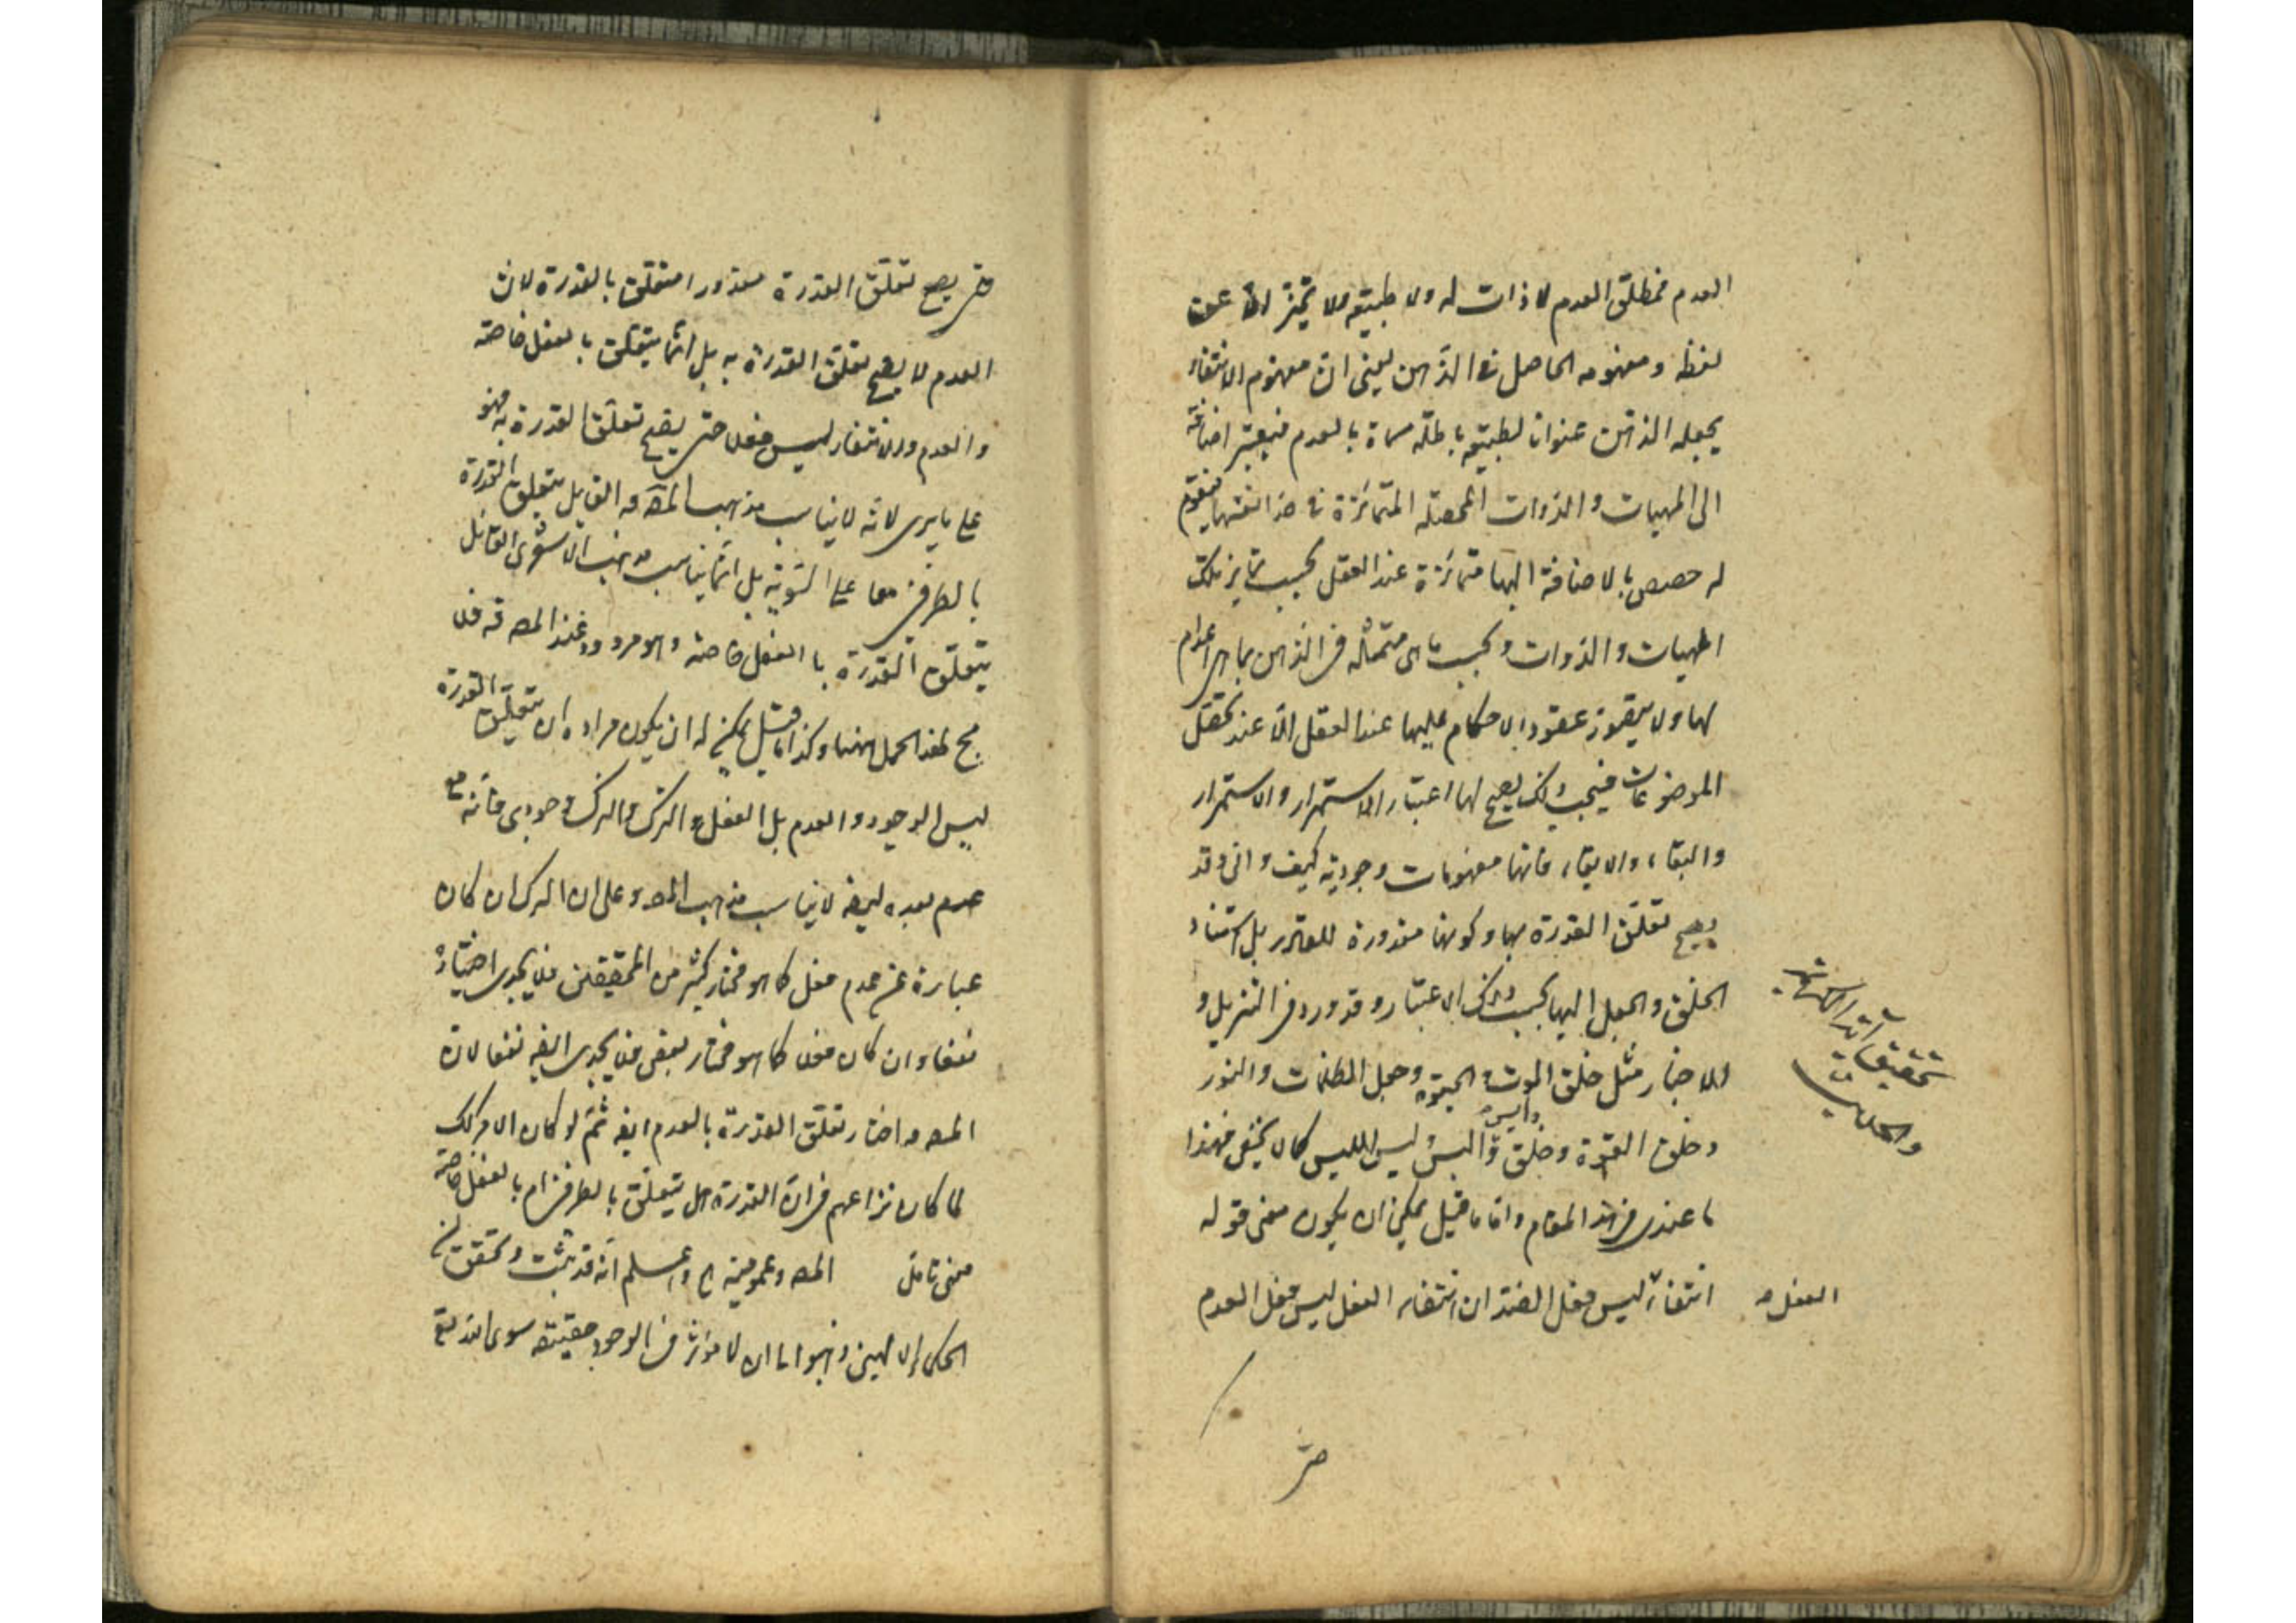 العدم فمطلق العدم لا ذات له ولا طبيعة ولا تميز الا عن
لفظه ومفهومه الحاصل في الذهن يعني ان مفهوم الانتفاء
يجعله الذهن عنوانا لطبيعة باطلة مسماة بالعدم فيعتبر اضافته
الى المهيات والذوات المحصلة المتمائزة في حد انفسها فيتقوم
له حصص بالاضافة اليها متمائزة عند العقل بحسب تمايز تلك
المهيات والذوات وبحسب ما هي متمثلة في الذهن بما هي اعدام
لها ولا يتقوم عقود الاحكام عليها عند العقل الا عند تعقل
الموضوعات فبحسب ذلك يصح لها اعتبار الاستمرار والاستمرار
والبقاء والابقاء فانها مفهومات وجودية كيف وانى وقد
يصح تعلق القدرة بها وكونها مقدورة للقادر بل استناد
الخلق والجعل اليها بحسب ذلك الاعتبار وقد ورد في التنزيل و
الاخبار مثل خلق الموت والحيوة وجعل الظلمات والنور
وخلق القوة وخلق ليس كما لا يخفى فهذا
ما عندي في هذا المقام واما ما قيل يمكن ان يكون معنى قوله
انتفاء ليس فعل الضد ان انتفاء الفعل ليس فعل العدم
الفعل
تحقيق
حتى
حتى يصح تعلق القدرة مقدورا متعلق بالقدرة لان
العدم لا يصح تعلق القدرة به بل انما يتعلق بالفعل خاصة
والعدم والانتفاء ليس فعلا حتى يصح تعلق القدرة به فهو
على ما يرى لانه لا يناسب مذهب المصـ القايل بتعلق القدرة
بالطرفين معا على السوية بل انما يناسب مذهب الاشعري القائل
بتعلق القدرة بالفعل خاصة وهو مردود عند المصـ فلا
لهذا الحمل ههنا وكذا ما قيل يمكن له ان يكون مراده ان متعلق القدرة
ليس الوجود والعدم بل الفعل والترك والترك وجودي فانه مع
عدم بعده ايضا لا يناسب مذهب المصـ وعلى ان الترك ان كان
عبارة عن عدم فعل كما هو مختار كثير من المحققين فلا يجدي اختياره
نفعا وان كان فعلا كما هو مختار بعض فلا يجدي ايضا نفعا لان
المصـ اختار تعلق القدرة بالعدم ايضا ثم لو كان الامر كك
لما كان نزاعهم في ان القدرة هل يتعلق بالطرفين ام بالفعل خاصة
معنى تامل المصـ وعمومية واعلم انه قد ثبت وتحقق
الحكماء الالهيين ونبهوا ان لا مؤثر في الوجود حقيقة سوى الله تع